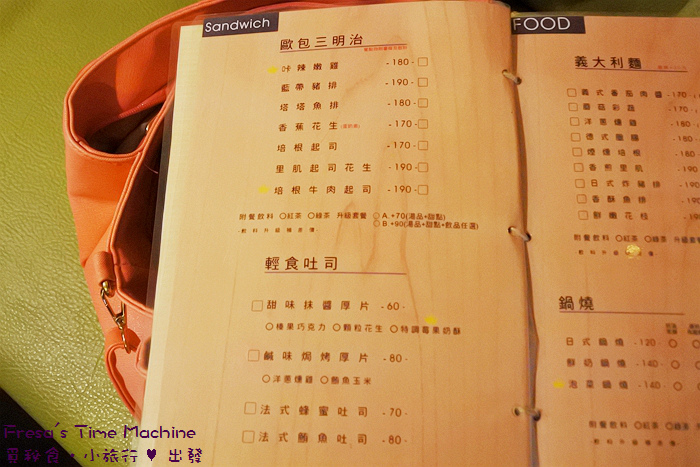 Sandwich
歐包三明治
咔辣嫩雞 -180-
藍帶豬排 -190-
塔塔魚排 -180-
香蕉花生(蛋奶素) -170-
培根起司 -170-
里肌起司花生 -190-
培根牛肉起司 -190-
附餐飲料 ○紅茶 ○綠茶 升級套餐 ○A.+70(湯品+甜點)
○B.+90(湯品+甜點+飲品任選)
輕食吐司
甜味抹醬厚片 -60-
○榛果巧克力 ○顆粒花生 ○特調莓果奶酥
鹹味焗烤厚片 -80-
○洋蔥燻雞 ○鮪魚玉米
法式蜂蜜吐司 -70-
法式鮪魚吐司 -80-
FOOD
義大利麵
義式番茄肉醬 -170-
蘑菇彩蔬 -170-
洋蔥燻雞 -170-
德式臘腸
煙燻培根
香煎里肌
日式炸豬排
香酥魚排
鮮嫩花枝
附餐飲料 ○紅茶 ○綠茶
鍋燒
日式鍋燒 -120-
鮮奶鍋燒 -140-
泡菜鍋燒 -140-
附餐飲料 ○紅茶 ○綠茶
Fresa's Time Machine
覓秘食・小旅行 ♥ 出發